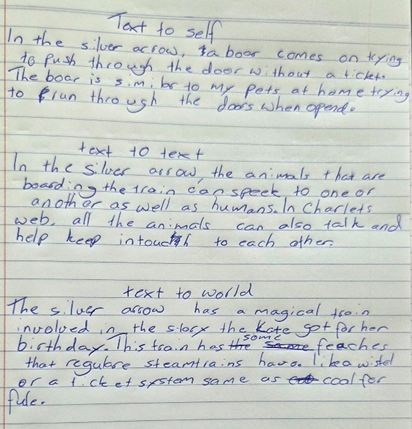 Text to self
In the silver arrow, a boar comes on trying
to push through the door without a ticket.
The boar is similar to my pets at home trying
to run through the doors when opend.
text to text
In the silver arrow, the animals that are
boarding the train can speek to one or
another as well as humans. In Charlets
web, all the animals can also talk and
help keep in touch to each other.
text to world
The silver arrow has a magical train
involved in the story the Kate got for her
birthday. This train has some feaches
that regulare steamtrains have. Like a
or a ticket system same as coal for
fule.